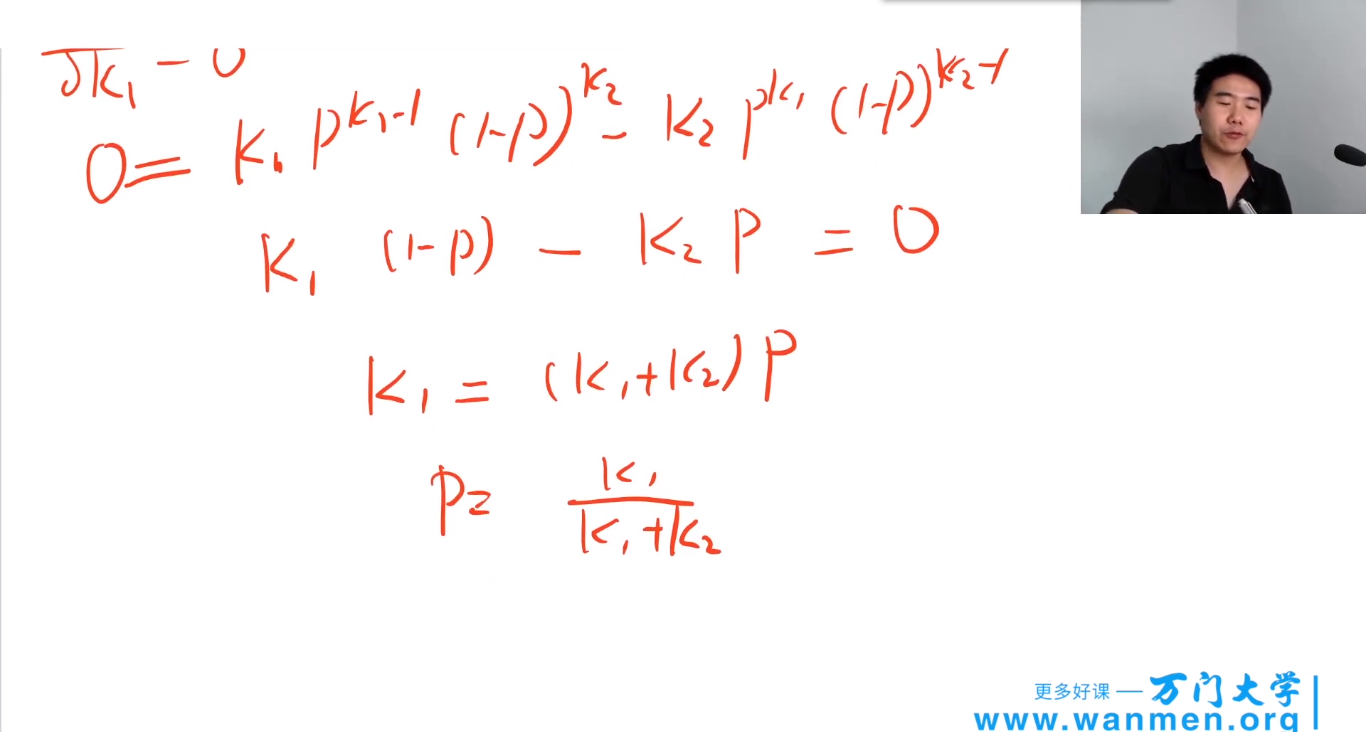 ∂k₁ = 0
0 = k₁ p^{k₁-1} (1-p)^{k₂} - k₂ p^{k₁} (1-p)^{k₂-1}
k₁ (1-p) - k₂ p = 0
k₁ = (k₁+k₂) p
p = k₁ / (k₁+k₂)
更多好课 — 万门大学
www.wanmen.org